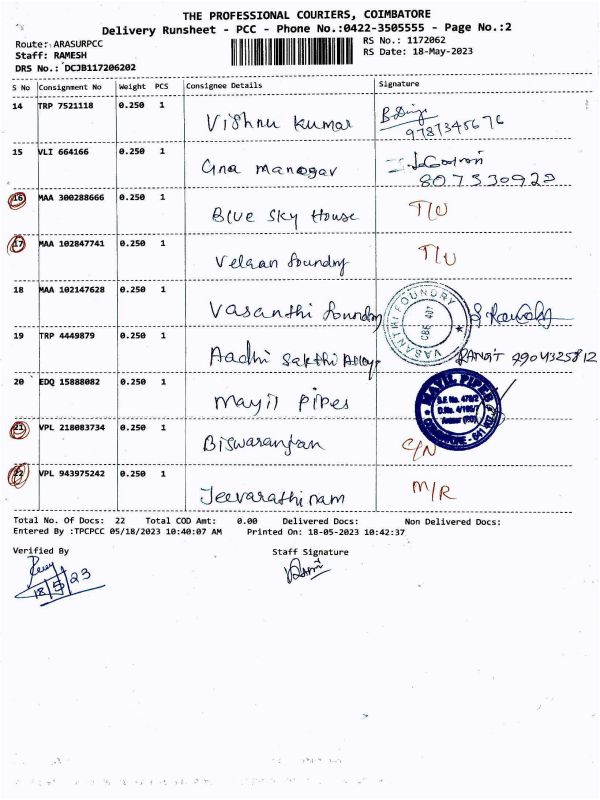 THE PROFESSIONAL COURIERS, COIMBATORE
Delivery Runsheet - PCC - Phone No.:0422-3505555 - Page No.:2
Route: ARASURPCC RS No.: 1172062
Staff: RAMESH RS Date: 18-May-2023
DRS No.: DCJB117206202
S No Consignment No Weight PCS Consignee Details Signature
14 TRP 7521118 0.250 1
Vishnu Kumar
9787345676
15 VLI 664166 0.250 1
Gna manogar
807530923
16 MAA 300288666 0.250 1
Blue sky House T/U
17 MAA 102847741 0.250 1
Velaan foundry T/U
18 MAA 102147628 0.250 1
Vasanthi foundry
VASANTHI FOUNDRY
CBE 407
19 TRP 4449879 0.250 1
Aadhi Sakthi Alloys RANJIT 9904325812
20 EDQ 15888082 0.250 1
mayil pipes
MAYIL PIPES
S.F. No. 478/2
D.No. 4/195/7
Arasur (P.O)
COIMBATORE - 641 407
21 VPL 218083734 0.250 1
Biswaranjan C/N
22 VPL 943975242 0.250 1
Jeevarathinam M/R
Total No. Of Docs: 22 Total COD Amt: 0.00 Delivered Docs: Non Delivered Docs:
Entered By :TPCPCC 05/18/2023 10:40:07 AM Printed On: 18-05-2023 10:42:37
Verified By Staff Signature
18/5/23